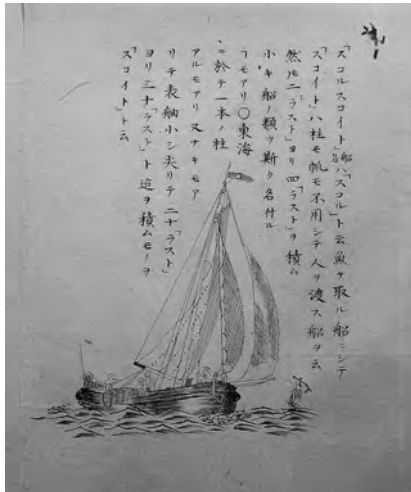 「スコルスコイト」船名ハ「スコル」ト云魚ヲ取ル船ニシテ
「スコイト」ハ柱モ帆モ不用シテ人ヲ渡ス船ヲ云
然ルニ二「ラスト」ヨリ四「ラスト」ヲ積ム
小キ船ノ類ヲ斯ク名付ル
「モアリ〇東海
ニ於テ一本ノ柱
アルモアリ又ナキモア
リテ表舳小シ尖リテ二十「ラスト」
ヨリ三十「ラスト」ト迠ヲ積ムモノヲ
「スコイト」ト云